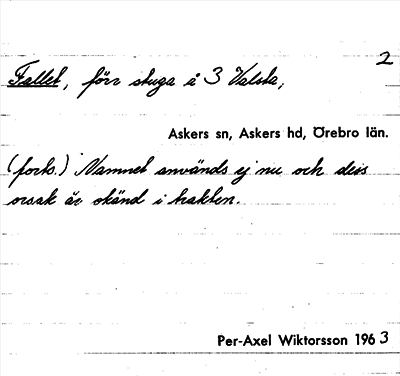 2
Fallet, förr stuga å 3 Valsta,
Askers sn, Askers hd, Örebro län.
(forts.) Namnet används ej nu och dess
orsak är okänd i trakten.
Per-Axel Wiktorsson 1963